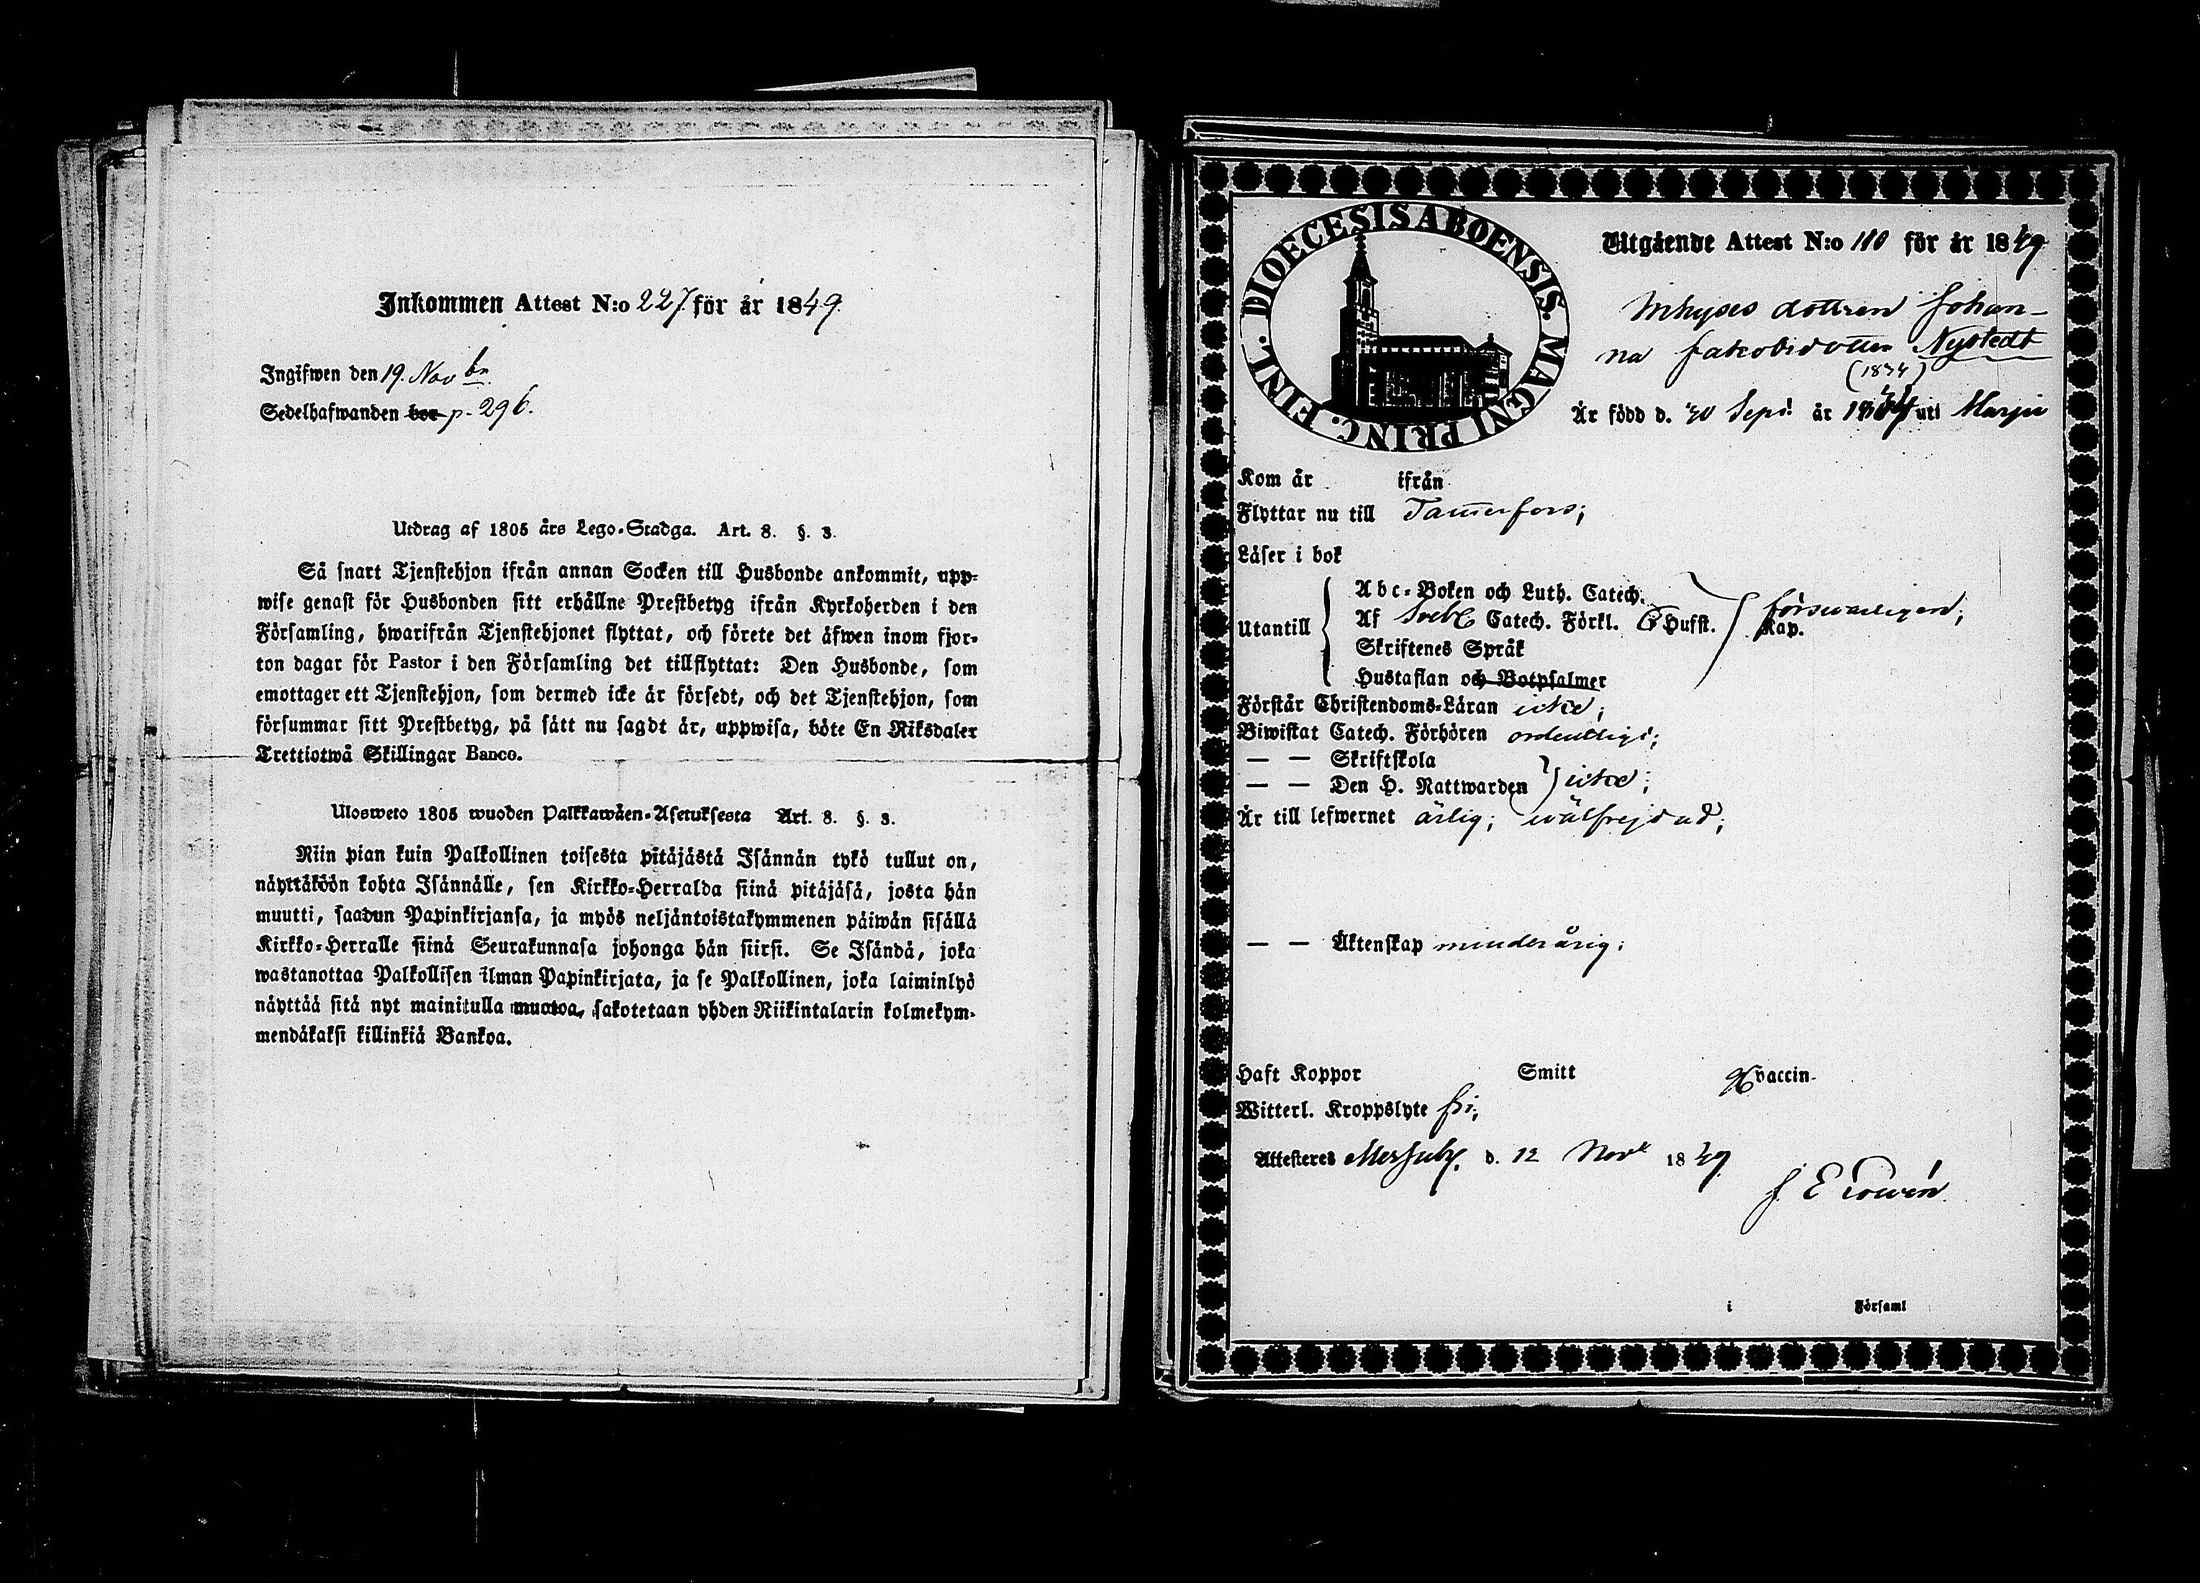 Inkommen Attest N:o 227 för år 1849.
Ingifwen den 19. Novbr.
Sedelhafwanden bor p. 296.
Utdrag af 1805 års Lego-Stadga. Art. 8. §. 3.
Så snart Tjenstehjon ifrån annan Socken till Husbonde ankommit, upp-
wise genast för Husbonden sitt erhållne Prestbetyg ifrån Kyrkoherden i den
Församling, hwarifrån Tjenstehjonet flyttat, och förete det äfwen inom fjor-
ton dagar för Pastor i den Församling det tillflyttat: Den Husbonde, som
emottager ett Tjenstehjon, som dermed icke är försedt, och det Tjenstehjon, som
försummar sitt Prestbetyg, på sätt nu sagdt är, uppwisa, böte En Riksdaler
Trettiotwå Skillingar Banco.
Ulosweto 1805 wuoden Palkkawäen-Asetuksesta Art. 8. §. 3.
Niin pian kuin Palkollinen toisesta pitäjästä Isännän tykö tullut on,
näyttäköön kohta Isännälle, sen Kirkko-Herralda siinä pitäjäsä, josta hän
muutti, saadun Papinkirjansa, ja myös neljäntoistakymmenen päiwän sisällä
Kirkko-Herralle siinä Seurakunnasa johonga hän siirsi. Se Isändä, joka
wastanottaa Palkollisen ilman Papinkirjata, ja se Palkollinen, joka laiminlyö
näyttää sitä nyt mainitulla muotoa, sakotetaan yhden Riikintalarin kolmekym-
mendäkaksi killinkiä Bankoa.
DIOECESIS ABOENSIS. MAGNI PRINC. FINL.
Utgående Attest N:o 110 för år 1849
Inhyses dottren Johan-
na Jakobsdotter Nystedt
(1834)
Är född d. 30 Sept. år 1834 uti
Kom år ifrån
Flyttar nu till Tammerfors;
Läser i bok
Utantill
Abc-Boken och Luth. Catech.
Af Sveb. Catech. Förkl. 6 Hufst. Kap. försvarligen;
Skriftenes Språk
Hustaflan och Botpsalmer
Förstår Christendoms-Läran icke;
Biwistat Catech. Förhören ordentligt;
— — Skriftskola
— — Den H. Nattwarden icke;
Är till lefwernet ärlig; wälfrejdad;
— — Äktenskap minderårig;
Haft Koppor Smitt vaccin.
Witterl. Kroppslyte fri;
Attesteras d. 12 Nov. 1849.
i Församl